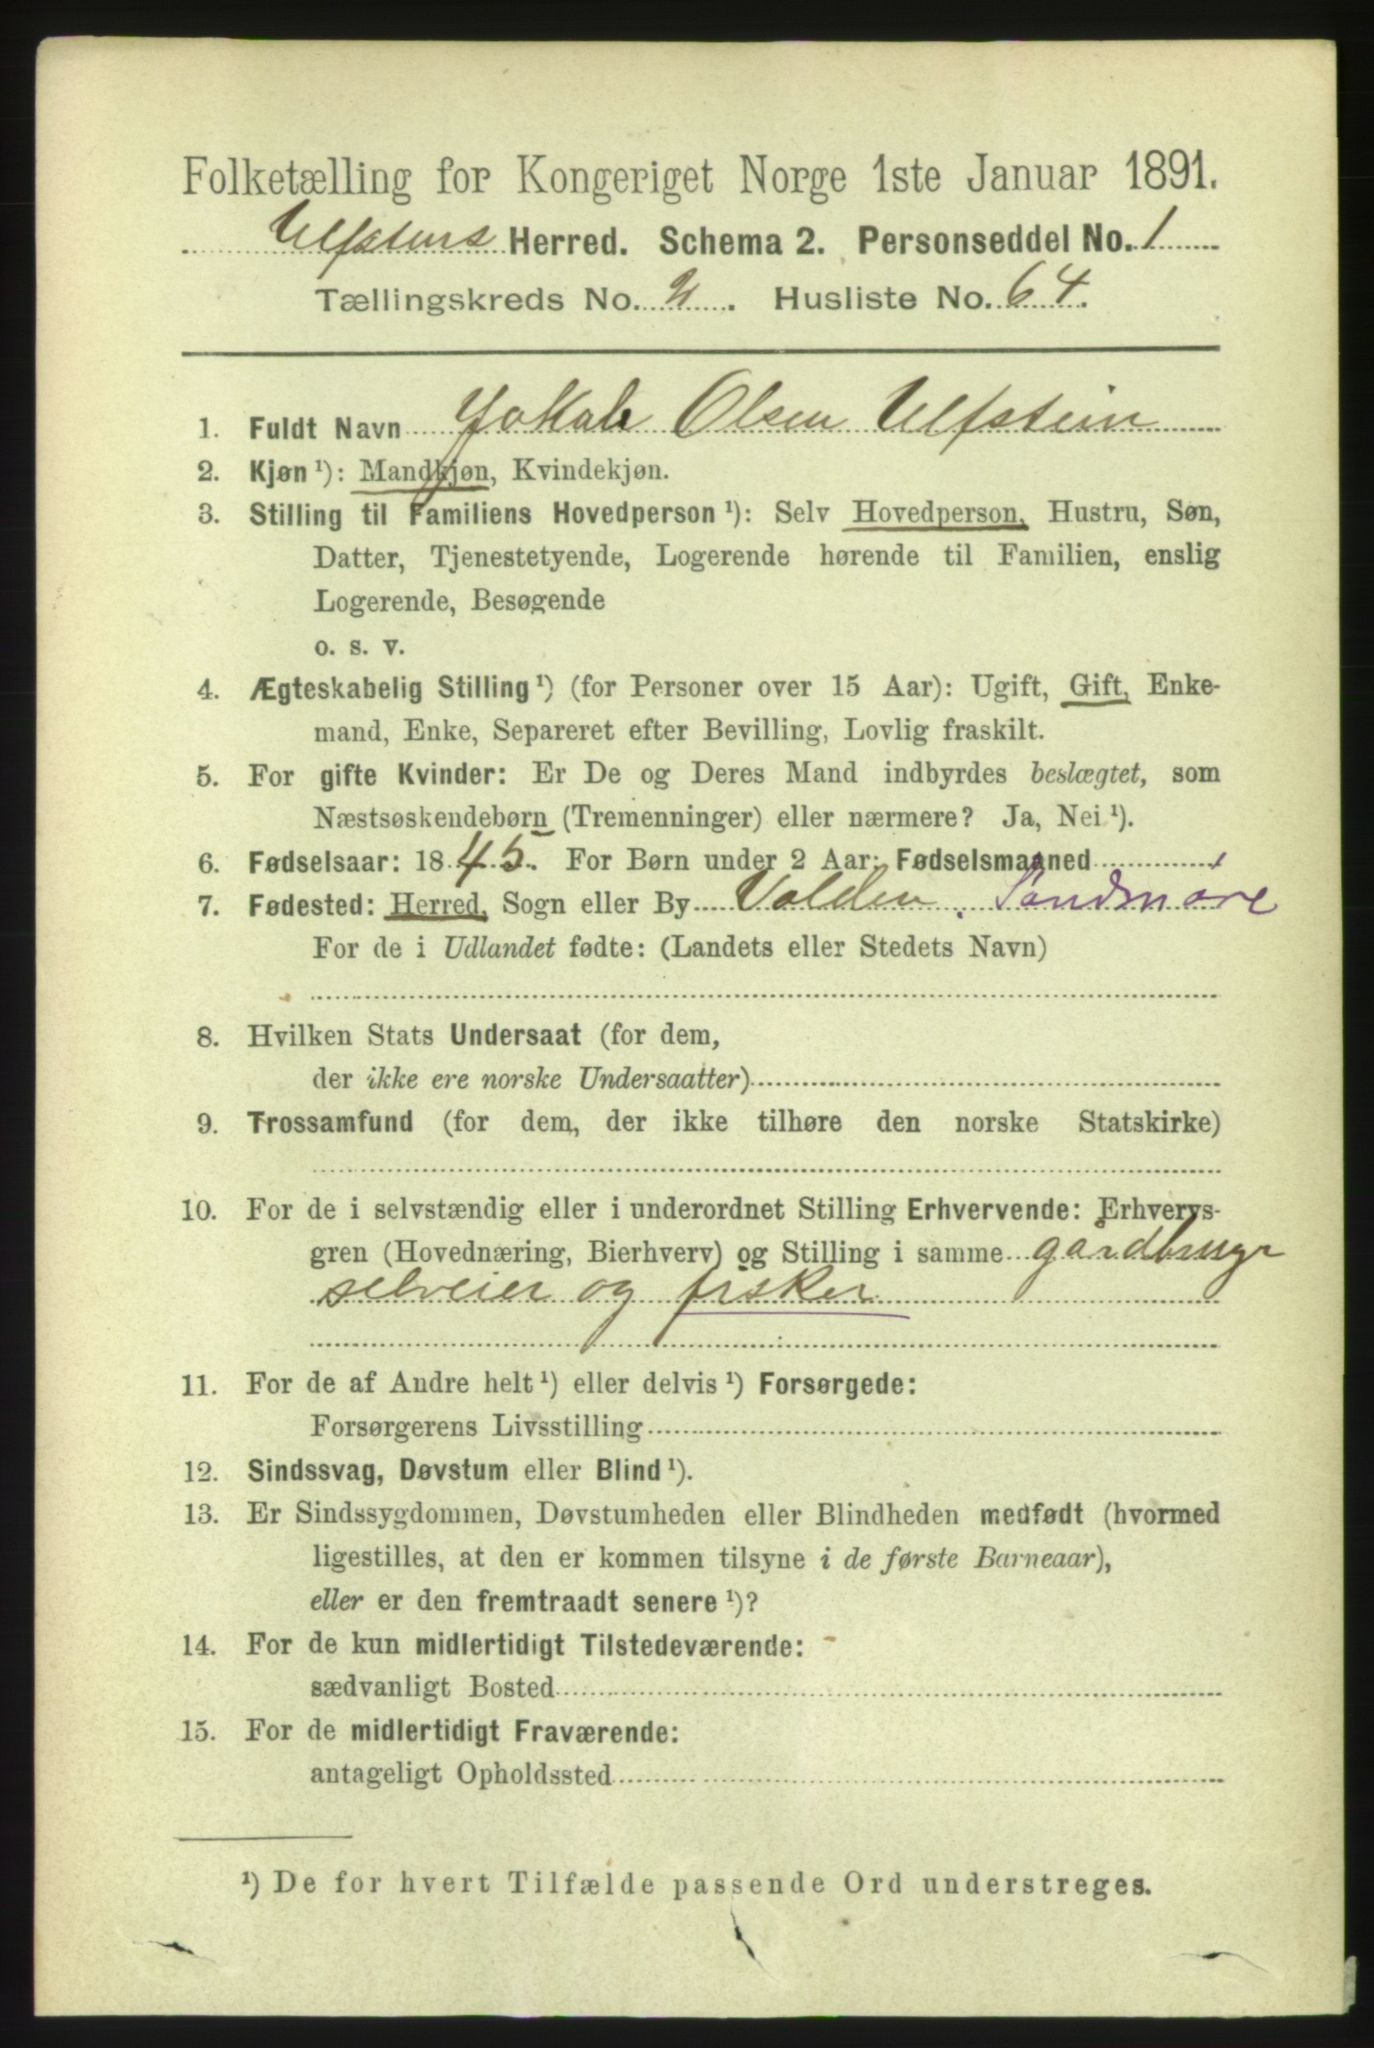 Folketælling for Kongeriget Norge 1ste Januar 1891.
Ulfstens Herred. Schema 2. Personseddel No. 1
Tællingskreds No. 2. Husliste No. 64.
1. Fuldt Navn Jokab Olsen Ulfstein
2. Kjøn ¹): Mandkjøn, Kvindekjøn.
3. Stilling til Familiens Hovedperson ¹): Selv Hovedperson, Hustru, Søn,
Datter, Tjenestetyende, Logerende hørende til Familien, enslig
Logerende, Besøgende
o. s. v.
4. Ægteskabelig Stilling ¹) (for Personer over 15 Aar): Ugift, Gift, Enke-
mand, Enke, Separeret efter Bevilling, Lovlig fraskilt.
5. For gifte Kvinder: Er De og Deres Mand indbyrdes beslægtet, som
Næstsøskendebørn (Tremenninger) eller nærmere? Ja, Nei ¹).
6. Fødselsaar: 1845. For Børn under 2 Aar: Fødselsmaaned
7. Fødested: Herred, Sogn eller By Volden. Søndmøre
For de i Udlandet fødte: (Landets eller Stedets Navn)
8. Hvilken Stats Undersaat (for dem,
der ikke ere norske Undersaatter)
9. Trossamfund (for dem, der ikke tilhøre den norske Statskirke)
10. For de i selvstændig eller i underordnet Stilling Erhvervende: Erhvervs-
gren (Hovednæring, Bierhverv) og Stilling i samme gårdbruger
selveier og fisker
11. For de af Andre helt ¹) eller delvis ¹) Forsørgede:
Forsørgerens Livsstilling
12. Sindssvag, Døvstum eller Blind ¹).
13. Er Sindssygdommen, Døvstumheden eller Blindheden medfødt (hvormed
ligestilles, at den er kommen tilsyne i de første Barneaar),
eller er den fremtraadt senere ¹)?
14. For de kun midlertidigt Tilstedeværende:
sædvanligt Bosted
15. For de midlertidigt Fraværende:
antageligt Opholdssted
¹) De for hvert Tilfælde passende Ord understreges.